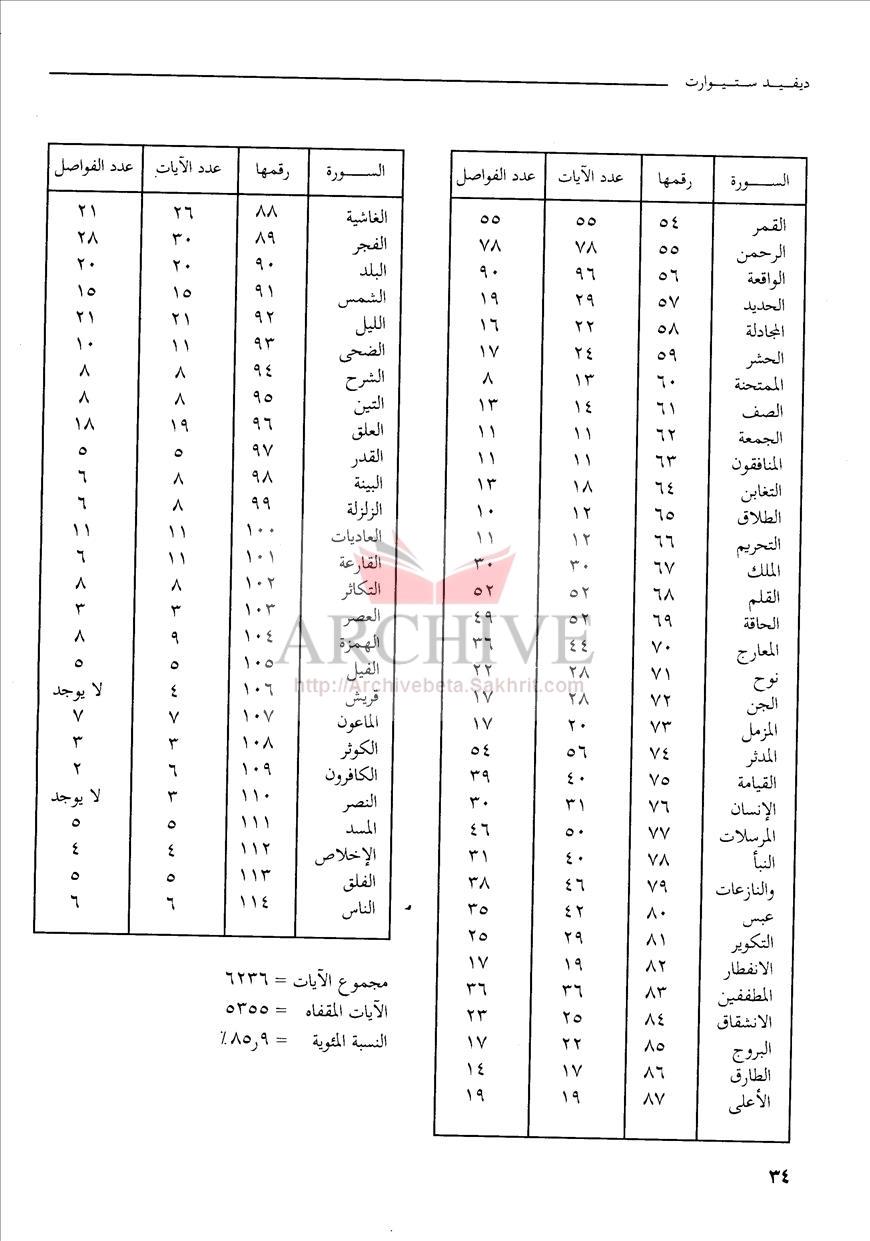 ديفيد ستيوارت
السورة رقمها عدد الآيات عدد الفواصل
القمر ٥٤ ٥٥ ٥٥
الرحمن ٥٥ ٧٨ ٧٨
الواقعة ٥٦ ٩٦ ٩٠
الحديد ٥٧ ٢٩ ١٩
المجادلة ٥٨ ٢٢ ١٦
الحشر ٥٩ ٢٤ ١٧
الممتحنة ٦٠ ١٣ ٨
الصف ٦١ ١٤ ١٣
الجمعة ٦٢ ١١ ١١
المنافقون ٦٣ ١١ ١١
التغابن ٦٤ ١٨ ١٣
الطلاق ٦٥ ١٢ ١٠
التحريم ٦٦ ١٢ ١١
الملك ٦٧ ٣٠ ٣٠
القلم ٦٨ ٥٢ ٥٢
الحاقة ٦٩ ٥٢ ٤٩
المعارج ٧٠ ٤٤ ٣٦
نوح ٧١ ٢٨ ٢٢
الجن ٧٢ ٢٨ ١٧
المزمل ٧٣ ٢٠ ١٧
المدثر ٧٤ ٥٦ ٥٤
القيامة ٧٥ ٤٠ ٣٩
الإنسان ٧٦ ٣١ ٣٠
المرسلات ٧٧ ٥٠ ٤٦
النبأ ٧٨ ٤٠ ٣١
والنازعات ٧٩ ٤٦ ٣٨
عبس ٨٠ ٤٢ ٣٥
التكوير ٨١ ٢٩ ٢٥
الانفطار ٨٢ ١٩ ١٧
المطففين ٨٣ ٣٦ ٣٦
الانشقاق ٨٤ ٢٥ ٢٣
البروج ٨٥ ٢٢ ١٧
الطارق ٨٦ ١٧ ١٤
الأعلى ٨٧ ١٩ ١٩
السورة رقمها عدد الآيات عدد الفواصل
الغاشية ٨٨ ٢٦ ٢١
الفجر ٨٩ ٣٠ ٢٨
البلد ٩٠ ٢٠ ٢٠
الشمس ٩١ ١٥ ١٥
الليل ٩٢ ٢١ ٢١
الضحى ٩٣ ١١ ١٠
الشرح ٩٤ ٨ ٨
التين ٩٥ ٨ ٨
العلق ٩٦ ١٩ ١٨
القدر ٩٧ ٥ ٥
البينة ٩٨ ٨ ٦
الزلزلة ٩٩ ٨ ٦
العاديات ١٠٠ ١١ ١١
القارعة ١٠١ ١١ ٦
التكاثر ١٠٢ ٨ ٨
العصر ١٠٣ ٣ ٣
الهمزة ١٠٤ ٩ ٨
الفيل ١٠٥ ٥ ٥
قريش ١٠٦ ٤ لا يوجد
الماعون ١٠٧ ٧ ٧
الكوثر ١٠٨ ٣ ٣
الكافرون ١٠٩ ٦ ٢
النصر ١١٠ ٣ لا يوجد
المسد ١١١ ٥ ٥
الإخلاص ١١٢ ٤ ٤
الفلق ١١٣ ٥ ٥
الناس ١١٤ ٦ ٦
مجموع الآيات = ٦٢٣٦
الآيات المقفاه = ٥٣٥٥
النسبة المئوية = ٨٥٫٩٪
ARCHIVE
http://Archivebeta.Sakhrit.com
٣٤